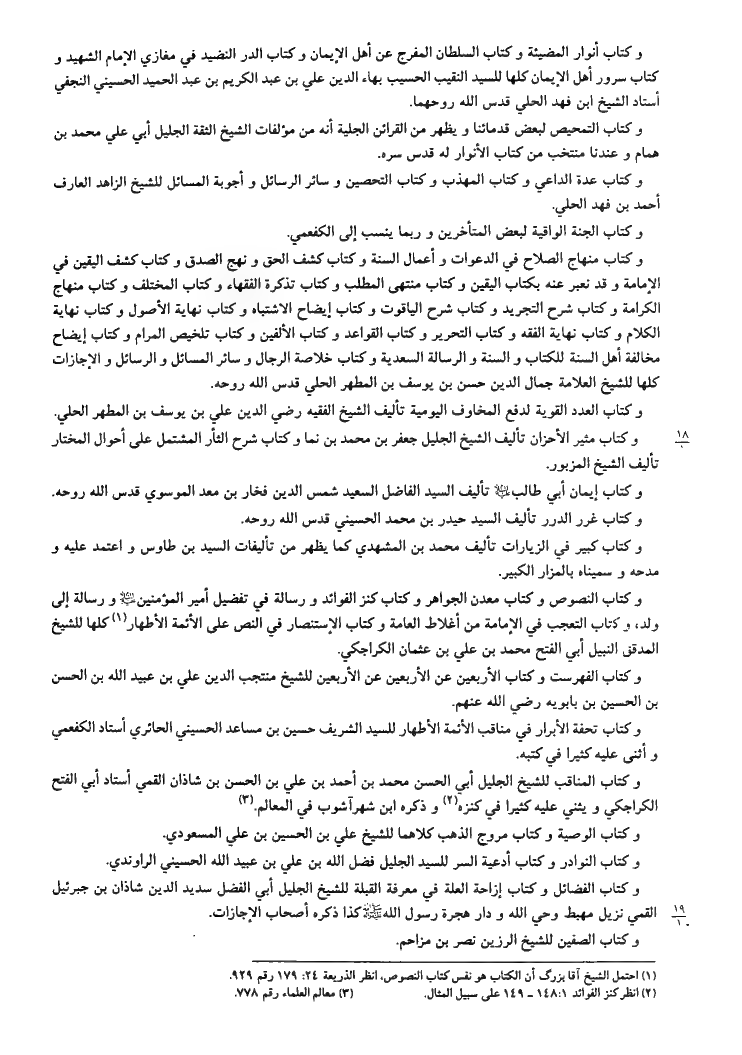 و كتاب أنوار المضيئة و كتاب السلطان المفرج عن أهل الإيمان و كتاب الدر النضيد في مغازي الإمام الشهيد و
كتاب سرور أهل الإيمان كلها للسيد النقيب الحسيب بهاء الدين علي بن عبد الكريم بن عبد الحميد الحسيني النجفي
أستاد الشيخ ابن فهد الحلي قدس الله روحهما.
و كتاب التمحيص لبعض قدمائنا و يظهر من القرائن الجلية أنه من مؤلفات الشيخ الثقة الجليل أبي علي محمد بن
همام و عندنا منتخب من كتاب الأنوار له قدس سره.
و كتاب عدة الداعي و كتاب المهذب و كتاب التحصين و سائر الرسائل و أجوبة المسائل للشيخ الزاهد العارف
أحمد بن فهد الحلي.
و كتاب الجنة الواقية لبعض المتأخرين و ربما ينسب إلى الكفعمي.
و كتاب منهاج الصلاح في الدعوات و أعمال السنة و كتاب كشف الحق و نهج الصدق و كتاب كشف اليقين في
الإمامة و قد نعبر عنه بكتاب اليقين و كتاب منتهى المطلب و كتاب تذكرة الفقهاء و كتاب المختلف و كتاب منهاج
الكرامة و كتاب شرح التجريد و كتاب شرح الياقوت و كتاب إيضاح الاشتباه و كتاب نهاية الأصول و كتاب نهاية
الكلام و كتاب نهاية الفقه و كتاب التحرير و كتاب القواعد و كتاب الألفين و كتاب تلخيص المرام و كتاب إيضاح
مخالفة أهل السنة للكتاب و السنة و الرسالة السعدية و كتاب خلاصة الرجال و سائر المسائل و الرسائل و الإجازات
كلها للشيخ العلامة جمال الدين حسن بن يوسف بن المطهر الحلي قدس الله روحه.
و كتاب العدد القوية لدفع المخاوف اليومية تأليف الشيخ الفقيه رضي الدين علي بن يوسف بن المطهر الحلي.
١٨
و كتاب مثير الأحزان تأليف الشيخ الجليل جعفر بن محمد بن نما و كتاب شرح الثأر المشتمل على أحوال المختار
تأليف الشيخ المزبور.
و كتاب إيمان أبي طالب تأليف السيد الفاضل السعيد شمس الدين فخار بن معد الموسوي قدس الله روحه.
و كتاب غرر الدرر تأليف السيد حيدر بن محمد الحسيني قدس الله روحه.
و كتاب كبير في الزيارات تأليف محمد بن المشهدي كما يظهر من تأليفات السيد بن طاوس و اعتمد عليه و
مدحه و سميناه بالمزار الكبير.
و كتاب النصوص و كتاب معدن الجواهر و كتاب كنز الفوائد و رسالة في تفضيل أمير المؤمنين و رسالة إلى
ولده و كتاب التعجب في الإمامة من أغلاط العامة و كتاب الإستنصار في النص على الأئمة الأطهار(١) كلها للشيخ
المدقق النبيل أبي الفتح محمد بن علي بن عثمان الكراجكي.
و كتاب الفهرست و كتاب الأربعين عن الأربعين عن الأربعين للشيخ منتجب الدين علي بن عبيد الله بن الحسن
بن الحسين بن بابويه رضي الله عنهم.
و كتاب تحفة الأبرار في مناقب الأئمة الأطهار للسيد الشريف حسين بن مساعد الحسيني الحائري أستاد الكفعمي
و أثنى عليه كثيرا في كتبه.
و كتاب المناقب للشيخ الجليل أبي الحسن محمد بن أحمد بن علي بن الحسن بن شاذان القمي أستاد أبي الفتح
الكراجكي و يثني عليه كثيرا في كنزه(٢) و ذكره ابن شهرآشوب في المعالم.(٣)
و كتاب الوصية و كتاب مروج الذهب كلاهما للشيخ علي بن الحسين بن علي المسعودي.
و كتاب النوادر و كتاب أدعية السر للسيد الجليل فضل الله بن علي بن عبيد الله الحسيني الراوندي.
و كتاب الفضائل و كتاب إزاحة العلة في معرفة القبلة للشيخ الجليل أبي الفضل سديد الدين شاذان بن جبرئيل
١٩
١
القمي نزيل مهبط وحي الله و دار هجرة رسول الله ﷺ كذا ذكره أصحاب الإجازات.
و كتاب الصفين للشيخ الرزين نصر بن مزاحم.
(١) احتمل الشيخ آقا بزرگ أن الكتاب هو نفس كتاب النصوص، انظر الذريعة ٢٤: ١٧٩ رقم ٩٢٩.
(٢) انظر كنز الفوائد ١: ١٤٨ ـ ١٤٩ على سبيل المثال. (٣) معالم العلماء رقم ٧٧٨.